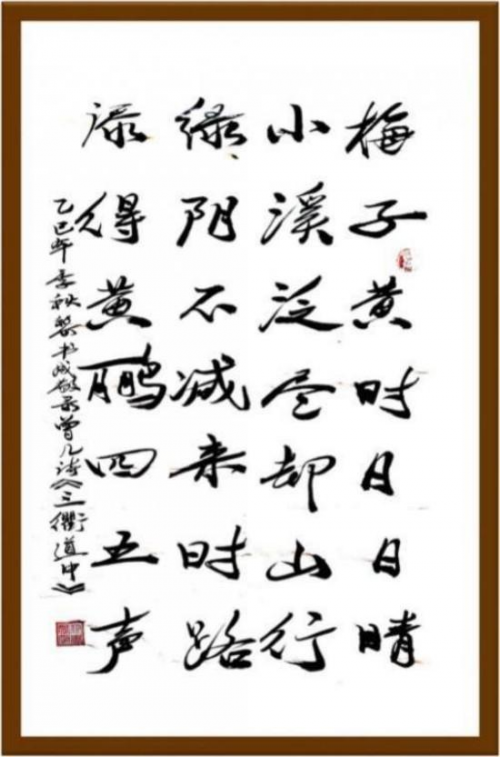 梅子黄时日日晴
小溪泛尽却山行
绿阴不减来时路
添得黄鹂四五声
乙巳年李秋黎书录曾几诗《三衢道中》